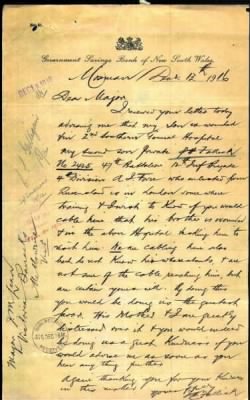 Government Savings Bank of New South Wales
Mosman Dec 13th 1916
Dear Major
I received your letter today
advising me that my Son is wounded
in 2nd Southern General Hospital
my second son Private
No 2425 47th Battalion 12th Inf Brigade
4th Division A.I.Force who enlisted from
Queensland is in London some where
training & I wish to Know if you would
cable him that his brother is wounded
in the above Hospital asking him to
visit him. cabling him also
but do not Know his whereabouts, I am
not sure of the cable reaching him, but
am certain yours will. By doing this
you would be doing us the greatest
favor. His Mother & I are greatly
distressed over it & you would indeed
be doing us a great Kindness if you
would advise me as soon as you
hear any thing further.
Again thanking you for your Kindness
in this matter
yours
Major J M Lean
Victoria Barracks
Melbourne
Vict